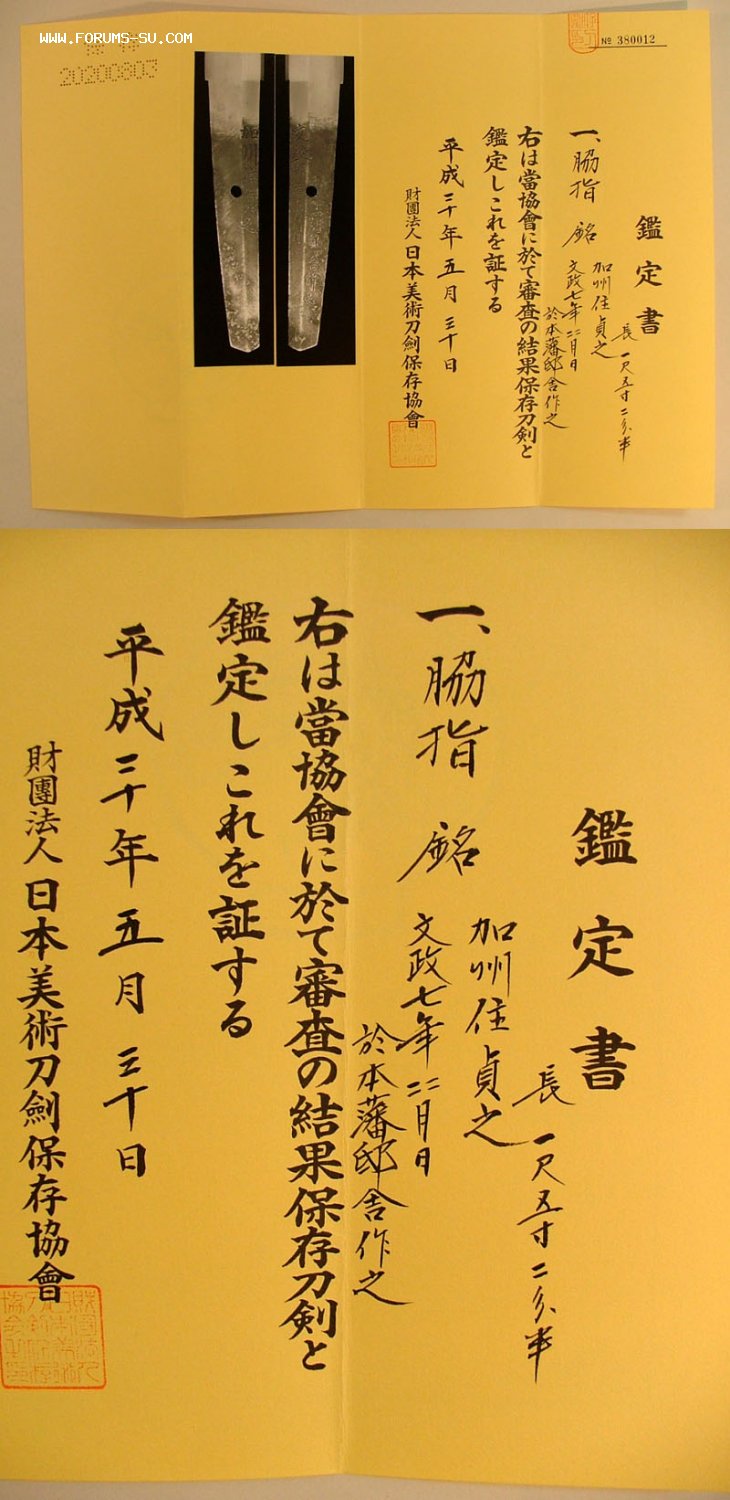 WWW.FORUMS-SU.COM
20200803
№ 380012
鑑定書
長 一尺五寸二分半
一、脇指 銘 加州住貞之
文政七年二月日
於本藩邸舎作之
右は當協會に於て審査の結果保存刀剣と
鑑定しこれを証する
平成二十年五月三十日
財團法人 日本美術刀劍保存協會
鑑定書
長 一尺五寸二分半
一、脇指 銘 加州住貞之
文政七年二月日
於本藩邸舎作之
右は當協會に於て審査の結果保存刀剣と
鑑定しこれを証する
平成二十年五月三十日
財團法人 日本美術刀劍保存協會